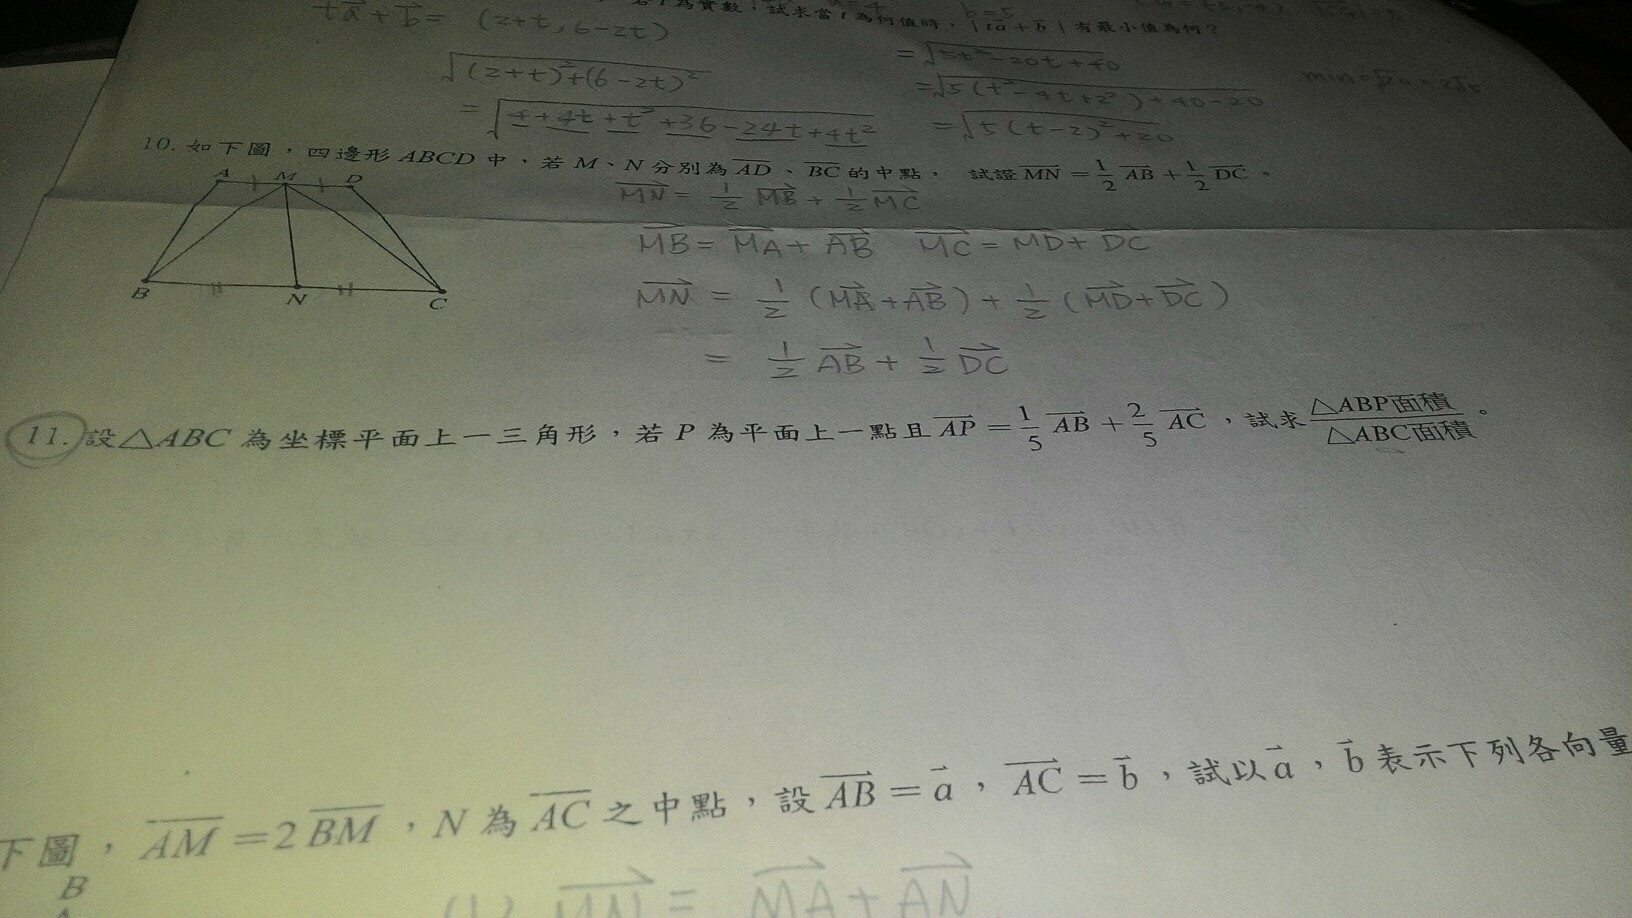 若 t 為實數，試求當 t 為何值時，| ta + b | 有最小值為何？
b = 5
ta + b = (2+t, 6-2t)
√(2+t)²+(6-2t)²
= √4+4t+t²+36-24t+4t²
= √5t²-20t+40
= √5(t²-4t+2²)+40-20
= √5(t-2)²+20
10. 如下圖，四邊形 ABCD 中，若 M、N 分別為 AD、BC 的中點， 試證 MN = 1/2 AB + 1/2 DC。
A M D
B N C
MN = 1/2 MB + 1/2 MC
MB = MA + AB MC = MD + DC
MN = 1/2 (MA + AB) + 1/2 (MD + DC)
= 1/2 AB + 1/2 DC
11. 設△ABC 為坐標平面上一三角形，若 P 為平面上一點且 AP = 1/5 AB + 2/5 AC，試求 △ABP面積/△ABC面積。
下圖，AM = 2 BM，N 為 AC 之中點，設 AB = a，AC = b，試以 a，b 表示下列各向量
B
(1) MN = MA + AN